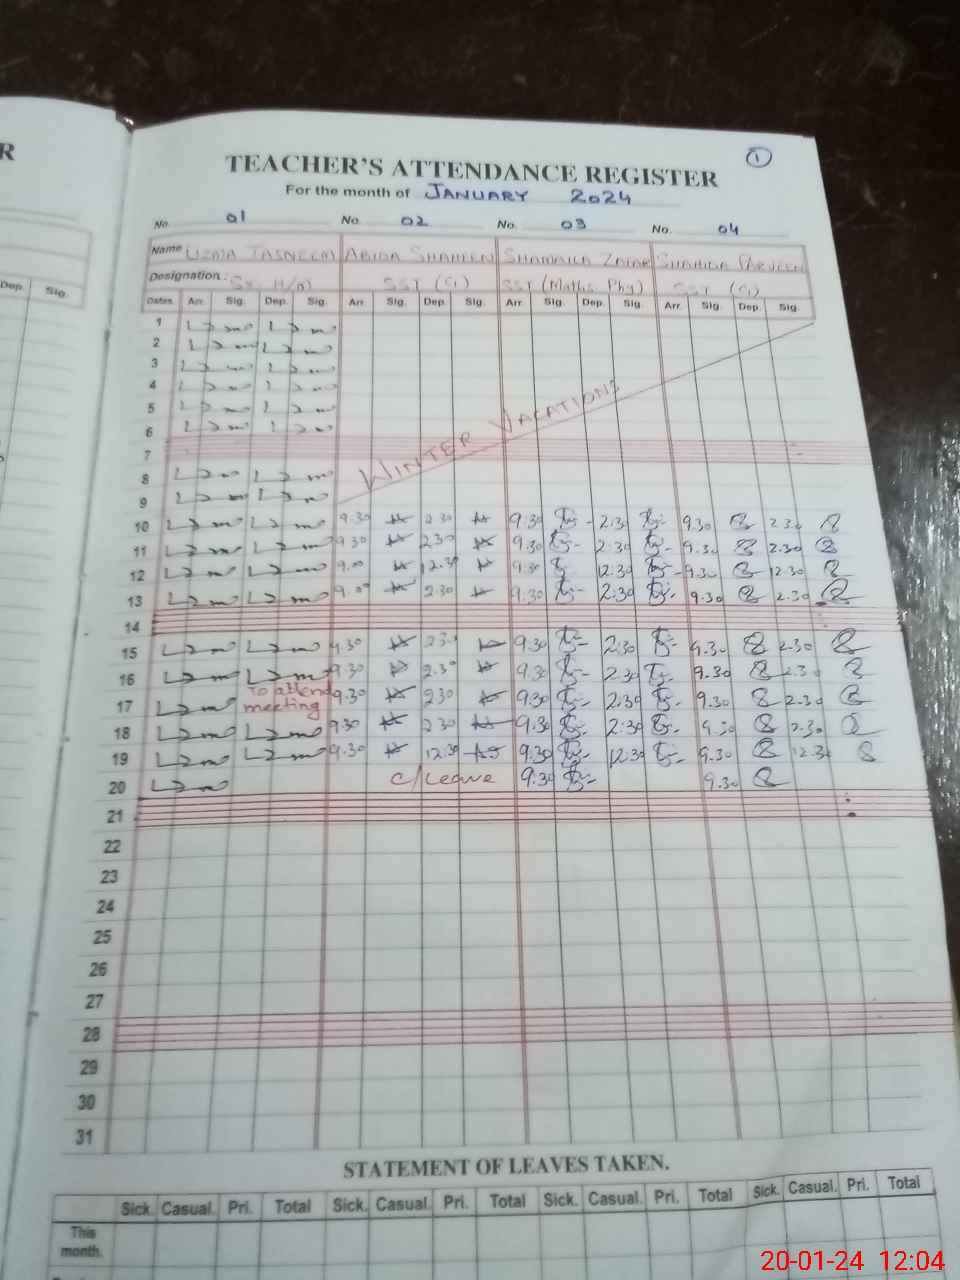 R
TEACHER'S ATTENDANCE REGISTER
1
For the month of JANUARY 2024
No. 01 No. 02 No. 03 No. 04
Name UZMA TASNEEM ABIDA SHAHEEN SHAMAILA ZAFAR SHAHIDA PARVEEN
Designation: Sr. H/M SST (G) SST (Maths. Phy) SST (G)
Dep. Sig.
Dates Arr. Sig. Dep. Sig. Arr. Sig. Dep. Sig. Arr. Sig. Dep. Sig. Arr. Sig. Dep. Sig.
1
2
3
4
5
6
7
WINTER VACATIONS
8
9
10 9.30 2.30 9.30 2:30 9.30 2.30
11 9.30 2.30 9.30 2:30 9.30 2.30
12 9.00 12.30 9.30 12:30 9.30 12.30
13 9.00 2.30 9.30 2:30 9.30 2.30
14
15 9.30 2.30 9.30 2:30 9.30 2.30
16 9.30 2.30 9.30 2:30 9.30 2.30
17 To attend meeting 9.30 2.30 9.30 2:30 9.30 2.30
18 9.30 2.30 9.30 2:30 9.30 2.30
19 9.30 12.30 9.30 12:30 9.30 12.30
20 C/Leave 9.30 9.30
21
22
23
24
25
26
27
28
29
30
31
STATEMENT OF LEAVES TAKEN.
Sick. Casual. Pri. Total Sick. Casual. Pri. Total Sick. Casual. Pri. Total Sick. Casual. Pri. Total
This
month.
20-01-24 12:04